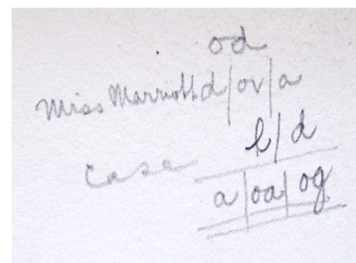 od
Miss Marriott d/or/a
l/d
case
a/oa/og